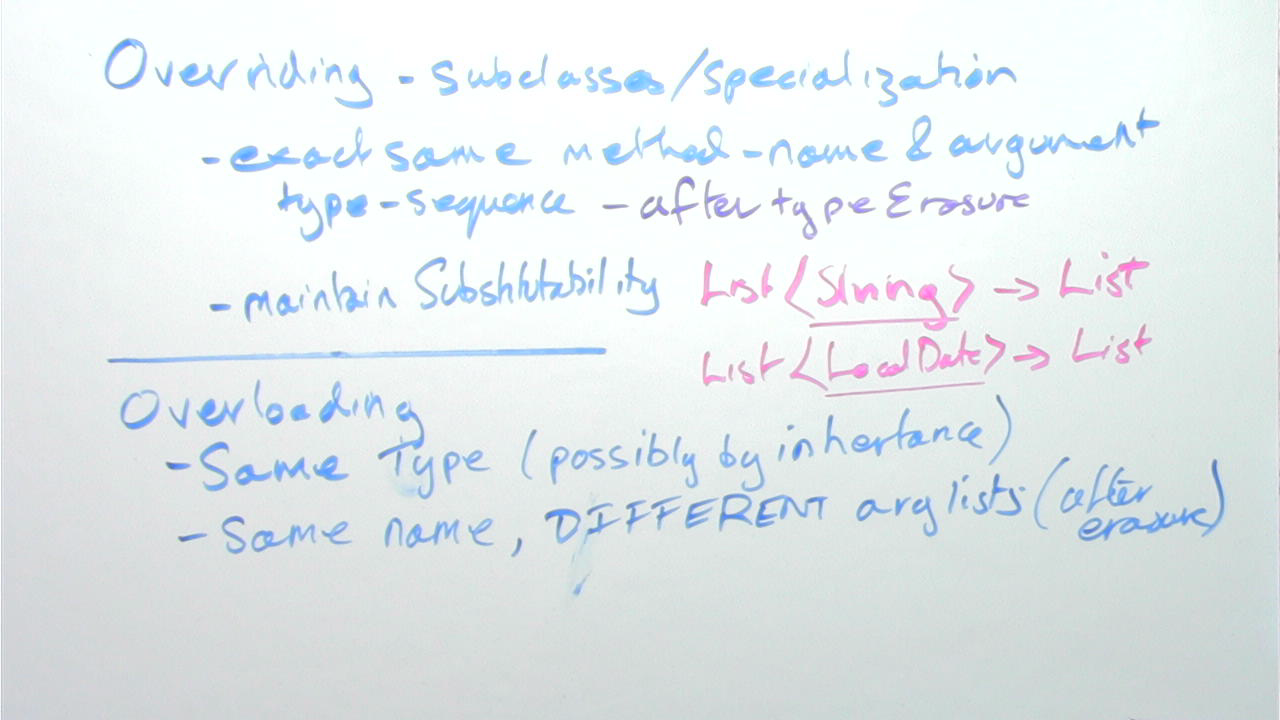 Overriding - subclasses/specialization
- exact same method-name & argument
type-sequence - after type Erasure
- maintain Substitutability
List<String> -> List
List<LocalDate> -> List
Overloading
- Same Type (possibly by inhertance)
- Same name, DIFFERENT arg lists (after
erasure)